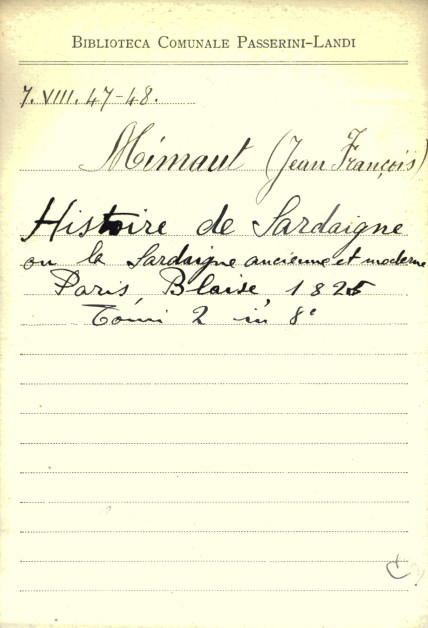 BIBLIOTECA COMUNALE PASSERINI-LANDI
7. VIII. 47-48.
Mimaut (Jean François)
Histoire de Sardaigne
ou la Sardaigne ancienne et moderne
Paris, Blaise, 1825
Tomi 2 in 8°